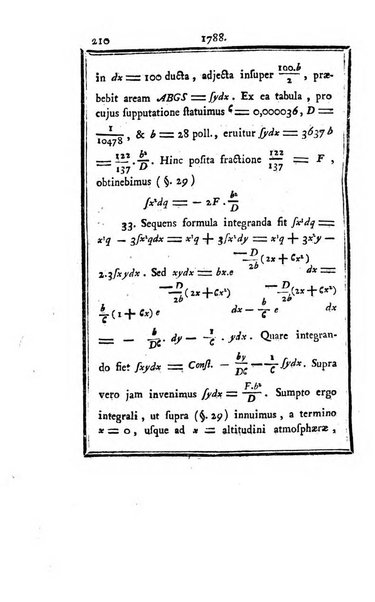 210 1788.
in dx = 100 ducta, adjecta insuper 100.b/2, præ-
bebit aream ABGS = ſydx. Ex ea tabula, pro
cujus supputatione ſtatuimus ϐ = 0,000036, D =
1/10478, & b = 28 poll., eruitur ſydx = 3637 b
= 122/137 . b²/D. Hinc poſita fractione 122/137 = F,
obtinebimus (§. 29)
ſx²dq = — 2F. b²/D
33. Sequens formula integranda fit ſx³dq =
x³q — 3ſx²qdx = x³q + 3ſx²dy = x³q + 3x²y —
2.3ſxydx. Sed xydx = bx.e^(—D/2b (2x + ϐx²)) dx =
b/ϐ (1 + ϐx) e^(—D/2b (2x + ϐx²)) dx — b/ϐ e^(—D/2b (2x + ϐx²)) dx
= — b/Dϐ . dy — 1/ϐ . ydx. Quare integran-
do fiet ſxydx = Conſt. — by/Dϐ — 1/ϐ ſydx. Supra
vero jam invenimus ſydx = F.b²/D. Sumpto ergo
integrali, ut ſupra (§. 29) innuimus, a termino
x = 0, uſque ad x = altitudini atmoſphæræ,